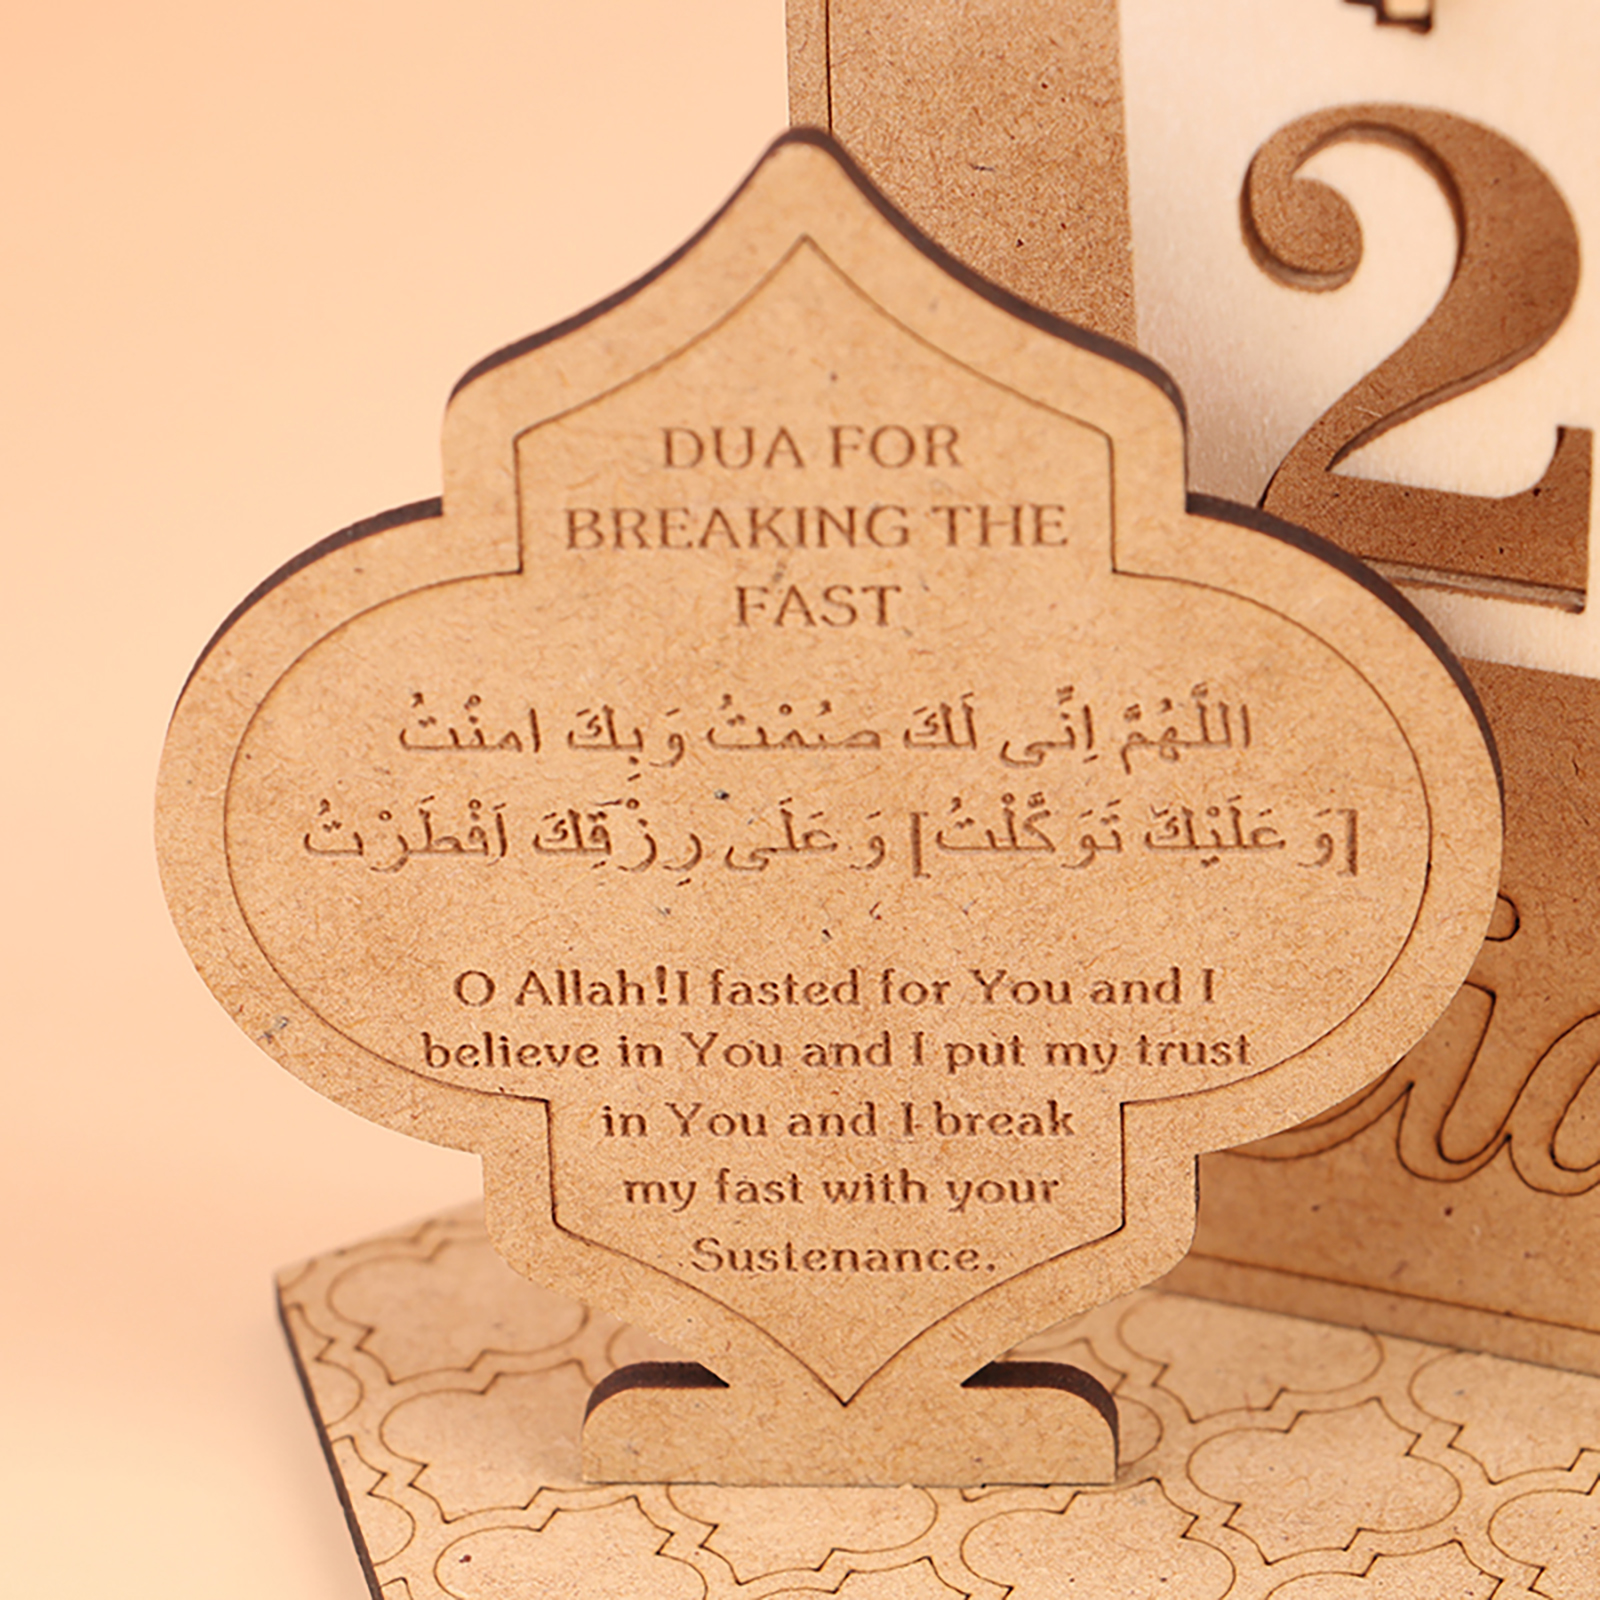 DUA FOR
BREAKING THE
FAST
اللَّهُمَّ اِنِّى لَكَ صُمْتُ وَبِكَ امنْتُ
[وَ عَلَيْكَ تَوَكَّلْتُ] وَ عَلَى رِزْقِكَ اَفْطَرْتُ
O Allah!I fasted for You and I
believe in You and I put my trust
in You and I break
my fast with your
Sustenance.
2